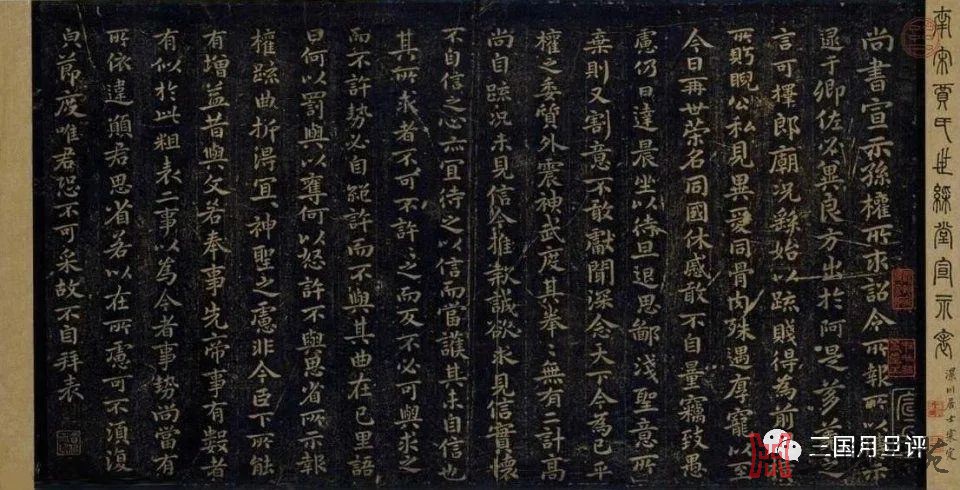 南宋賈氏世綵堂宣示表
尚書宣示孫權所求詔令所報所以博示
逮于卿佐必冀良方出於阿是芻蕘之
言可擇郎廟況繇始以疏賤得為前恩橫
所眄睨公私見異愛同骨肉殊遇厚寵以至
今日再世榮名同國休慼敢不自量竊致愚
慮仍日達晨坐以待旦退思鄙淺聖意所
棄則又割意不敢獻聞深念天下今為已平
權之委質外震神武度其拳〻無有二計高
尚自疏況未見信今推款誠欲求見信實懷
不自信之心亦宜待之以信而當護其未自信也
其所求者不可不許〻之而反不必可與求之
而不許勢必自絕許而不與其曲在己里語
曰何以罰與以奪何以怒許不與思省所示報
權疏曲折得宜神聖之慮非今臣下所能
有增益昔與文若奉事先帝事有數者
有似於此粗表二事以為今者事勢尚當有
所依違願君思省若以在所慮可不須復
皃節度唯君恐不可采故不自拜表
三国月旦评